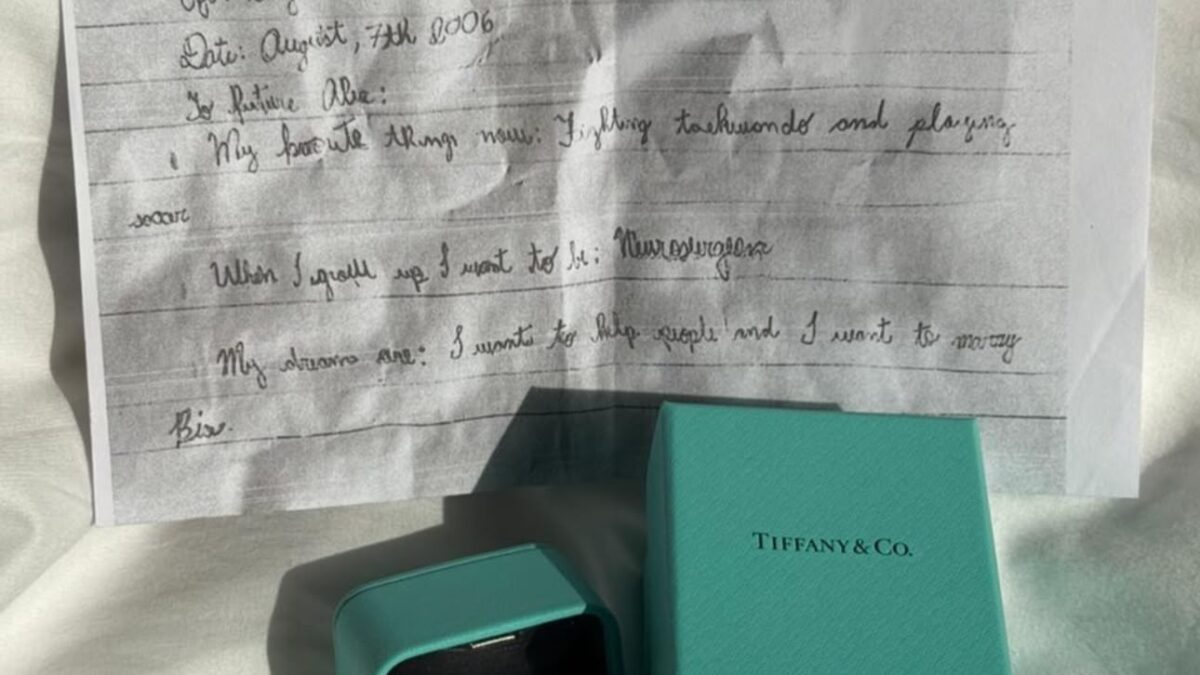 Date: August, 7th 2006
To future Alex:
My favorite things now: Fighting taekwondo and playing
soccer
When I grow up I want to be: Neurosurgeon
My dreams are: I want to help people and I want to marry
Bia.
TIFFANY & CO.